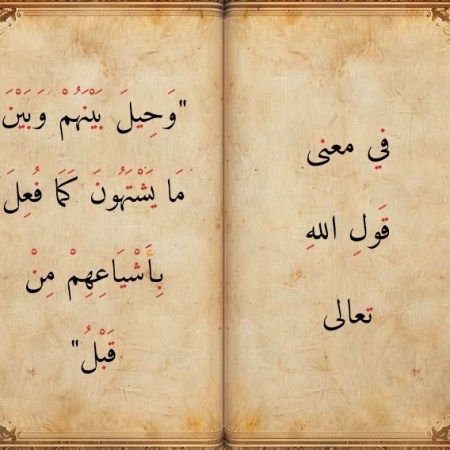 في معنى
قَولِ اللهِ
تعالى
"وَحِيلَ بَيْنَهُمْ وَبَيْنَ
مَا يَشْتَهُونَ كَمَا فُعِلَ
بِأَشْيَاعِهِمْ مِنْ
قَبْلُ"